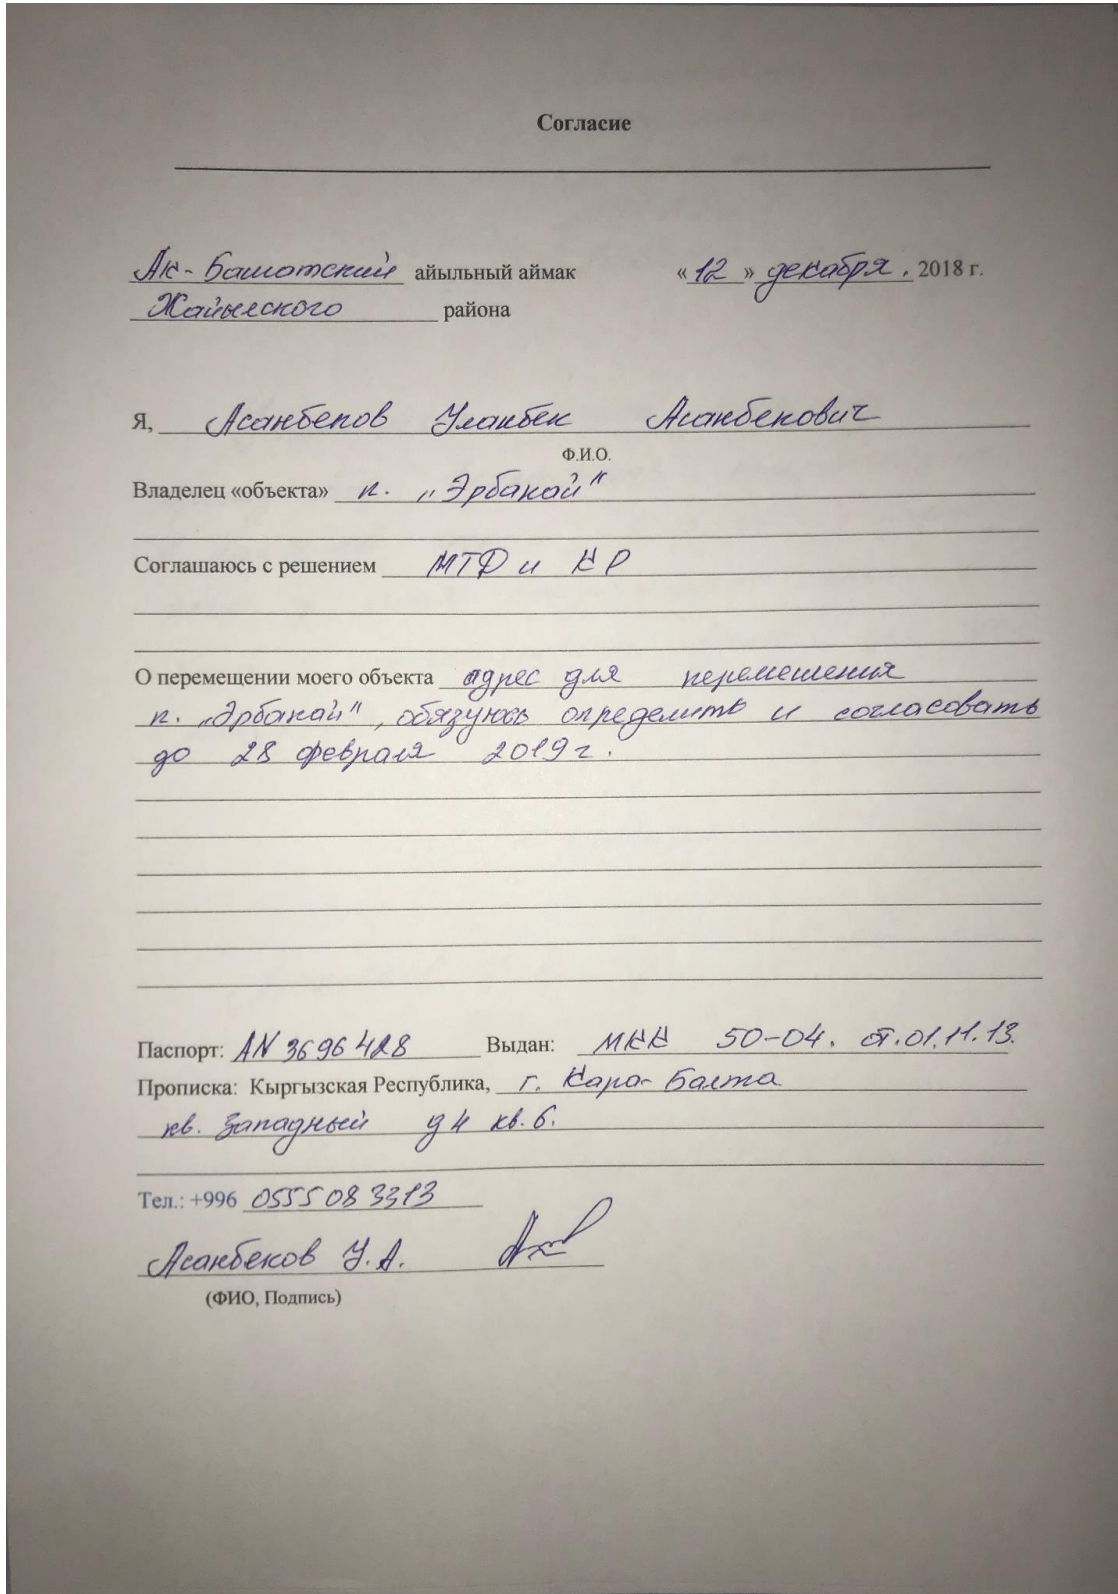 Согласие
Ак-Башатский айыльный аймак «12» декабря. 2018 г.
Жайылского района
Я, Асанбеков Уланбек Асанбекович
Ф.И.О.
Владелец «объекта» к. „Эрбакай"
Соглашаюсь с решением МТД и КР
О перемещении моего объекта адрес для перемешения
к. „Эрбакай", обязуюсь определить и согласовать
до 28 февраля 2019 г.
Паспорт: AN 3696428 Выдан: МКК 50-04. от.01.11.13.
Прописка: Кыргызская Республика, г. Кара-Балта
кв. Западный д 4 кв. 6.
Тел.: +996 0555 08 33 13
Асанбеков У.А.
(ФИО, Подпись)